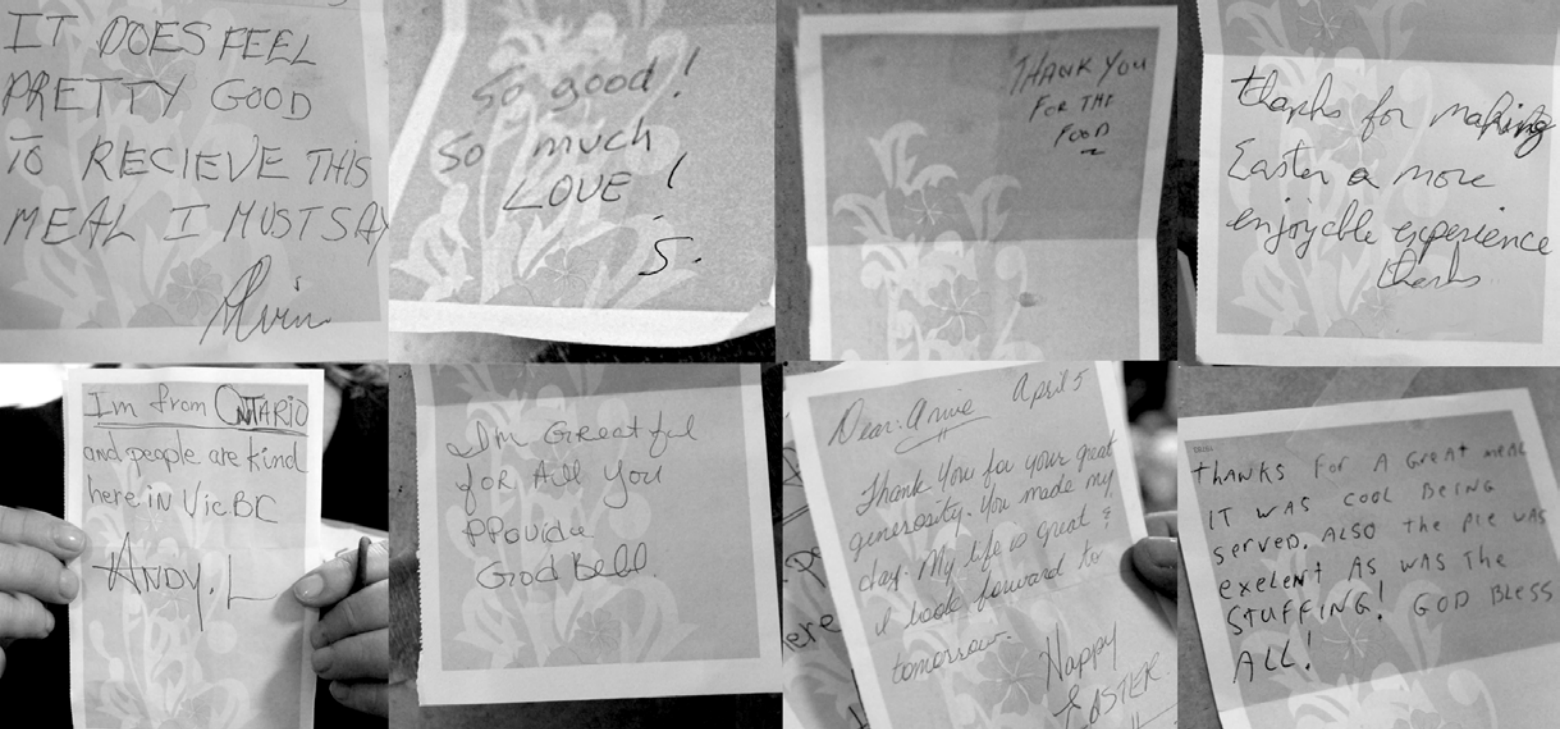 IT DOES FEEL
PRETTY GOOD
TO RECIEVE THIS
MEAL I MUST SAY
Alvin
So good!
So much
LOVE!
S.
THANK YOU
FOR THE
FOOD
thanks for making
Easter a more
enjoyable experience
thanks
Im from ONTARIO
and people are kind
here in Vic. BC
ANDY. L
I'm Greatful
for All You
PProvide
God Bell
Dear: Anne April 5
Thank You for your great
generosity. You made my
day. My life is great &
I look forward to
tomorrow.
Happy
EASTER
THANKS For A Great meal
IT WAS COOL BEING
served. ALSO the pie was
exelent AS WAS The
STUFFING! GOD BLESS
ALL!